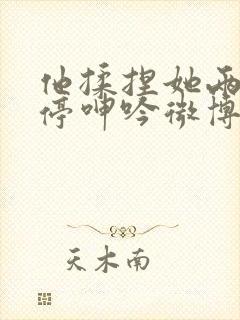 他揉捏她两
停呻吟微博
天木南